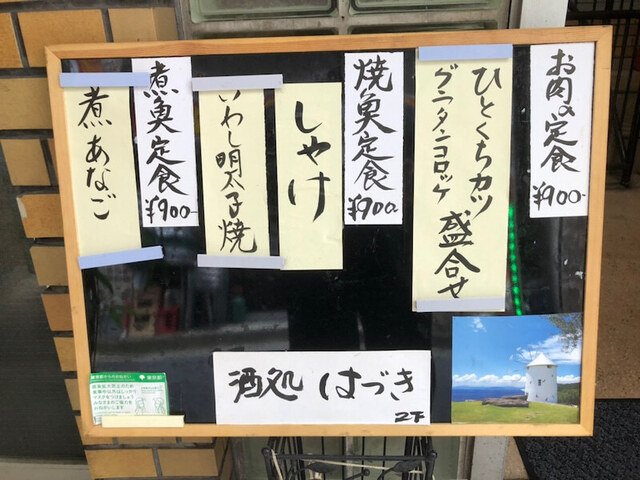 お肉の定食
¥900-
ひとくちカツ
グラタンコロッケ
盛合せ
焼魚定食
¥900-
しゃけ
いわし明太子焼
煮魚定食
¥900-
煮あなご
酒処 はづき
2F